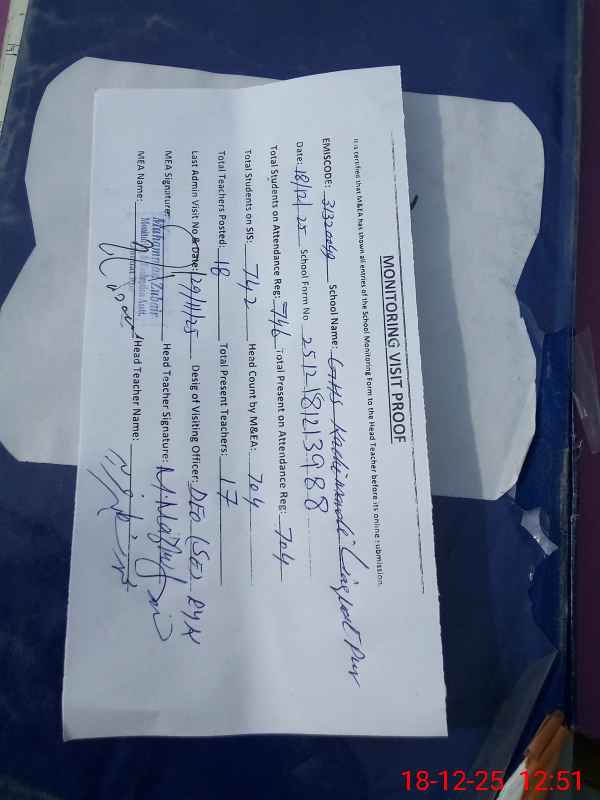 MONITORING VISIT PROOF
It is certified that M&EA has shown all entries of the School Monitoring Form to the Head Teacher before its online submission.
EMISCODE: 31320049 School Name: GHS Liaqat Pur
Date: 18/12/25 School Form No 25121812 3988
Total Students on Attendance Reg: 746 Total Present on Attendance Reg: 704
Total Students on SIS: 742 Head Count by M&EA: 704
Total Teachers Posted: 18 Total Present Teachers: 17
Last Admin Visit No & Date: 29/11/25 Desig of Visiting Officer: DEO (SE) RYK
Muhammad Zubair
MEA Signature: Head Teacher Signature:
MEA Name: Head Teacher Name:
18-12-25 12:51